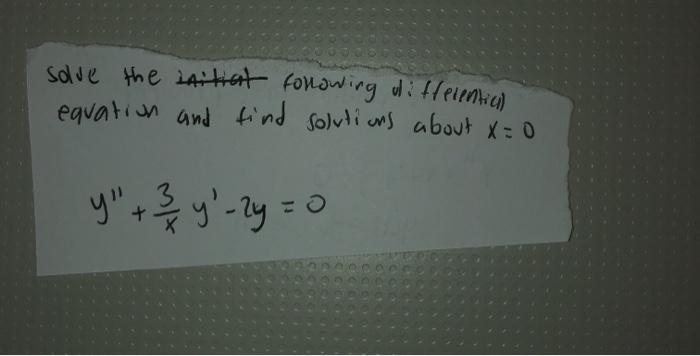 solve the initial following differential
equation and find solutions about x = 0
y" + 3/x y' - 2y = 0